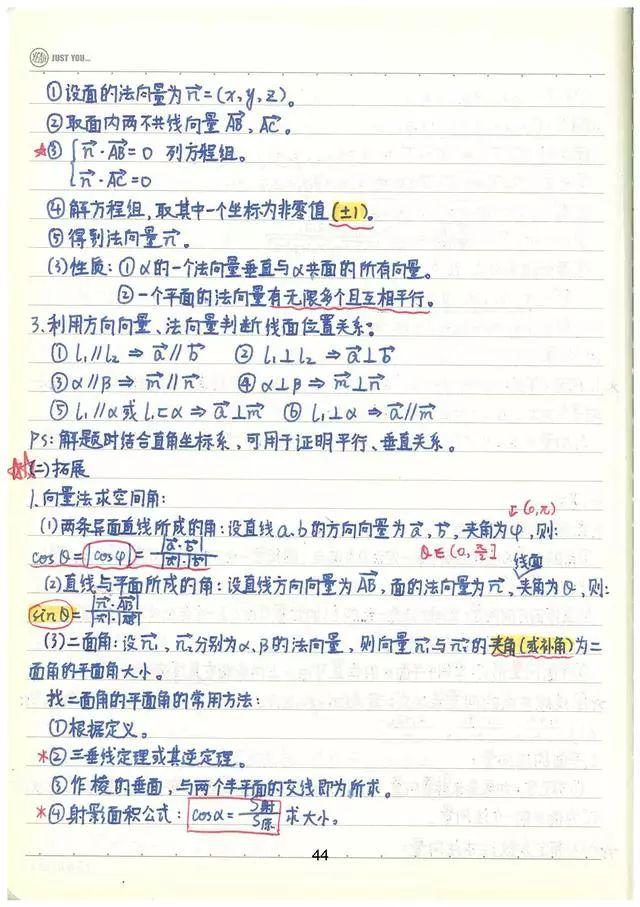 JUST YOU...
①设面的法向量为n⃗=(x,y,z)。
②取面内两不共线向量AB⃗,AC⃗。
★③ {n⃗·AB⃗=0 列方程组。
n⃗·AC⃗=0
④解方程组,取其中一个坐标为非零值(±1)。
⑤得到法向量n⃗。
(3)性质:①α的一个法向量垂直与α共面的所有向量。
②一个平面的法向量有无限多个且互相平行。
3.利用方向向量、法向量判断线面位置关系:
①l₁∥l₂ ⇒ a⃗∥b⃗ ②l₁⊥l₂ ⇒ a⃗⊥b⃗
③α∥β ⇒ m⃗∥n⃗ ④α⊥β ⇒ m⃗⊥n⃗
⑤l₁∥α或l₁⊂α ⇒ a⃗⊥m⃗ ⑥l₁⊥α ⇒ a⃗∥m⃗
PS:解题时结合直角坐标系,可用于证明平行、垂直关系。
★★(二)拓展
1.向量法求空间角:
↓(0,π)
(1)两条异面直线所成的角:设直线a、b的方向向量为a⃗,b⃗,夹角为φ,则:
cosθ=|cosφ|=|a⃗·b⃗|/|a⃗|·|b⃗| θ∈(0,π/2] 线面
(2)直线与平面所成的角:设直线方向向量为AB⃗,面的法向量为n⃗,夹角为θ,则:
sinθ=|n⃗·AB⃗|/|n⃗|·|AB⃗|
(3)二面角:设n⃗₁,n⃗₂分别为α,β的法向量,则向量n⃗₁与n⃗₂的夹角(或补角)为二
面角的平面角大小。
找二面角的平面角的常用方法:
①根据定义。
*②三垂线定理或其逆定理。
③作棱的垂面,与两个半平面的交线即为所求。
*④射影面积公式:cosα=S射/S原 求大小。
44